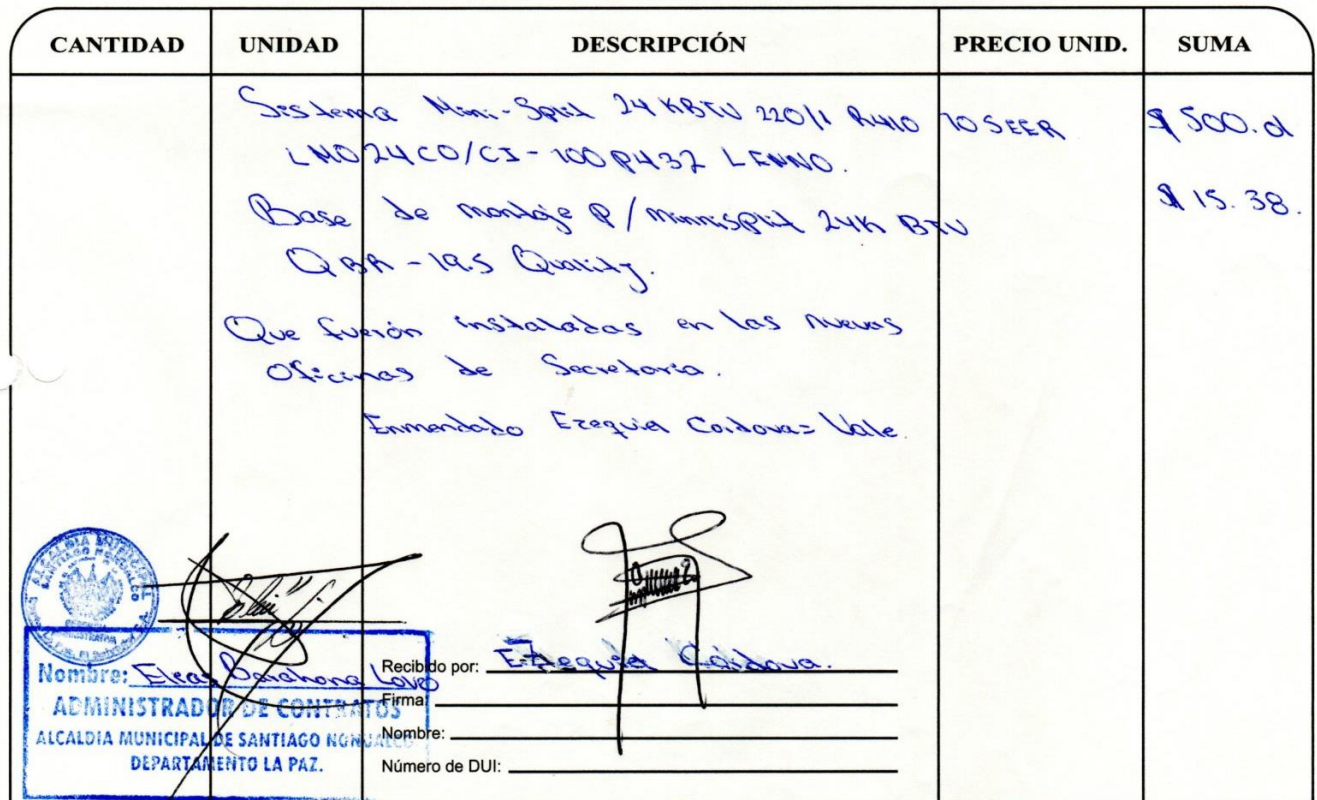 CANTIDAD UNIDAD DESCRIPCIÓN PRECIO UNID. SUMA
Sistema Mini-Split 24 KBTU 220/1 R410 10 SEER $ 500.01
LM024CO/CI-100P432 LENNO.
Base de montaje P/minisplit 24K BTU $ 15.38.
QBR-19.5 Quality.
Que fuerón instaladas en las nuevas
Oficinas de Secretaria.
Enmendado Ezequiel Cordova= Vale.
ALCALDIA MUNICIPAL
SANTIAGO NONUALCO
Nombre: Elias Barahona Lovo
ADMINISTRADOR DE CONTRATOS
ALCALDIA MUNICIPAL DE SANTIAGO NONUALCO
DEPARTAMENTO LA PAZ.
Recibido por: Ezequiel Córdova.
Firma:
Nombre:
Número de DUI: